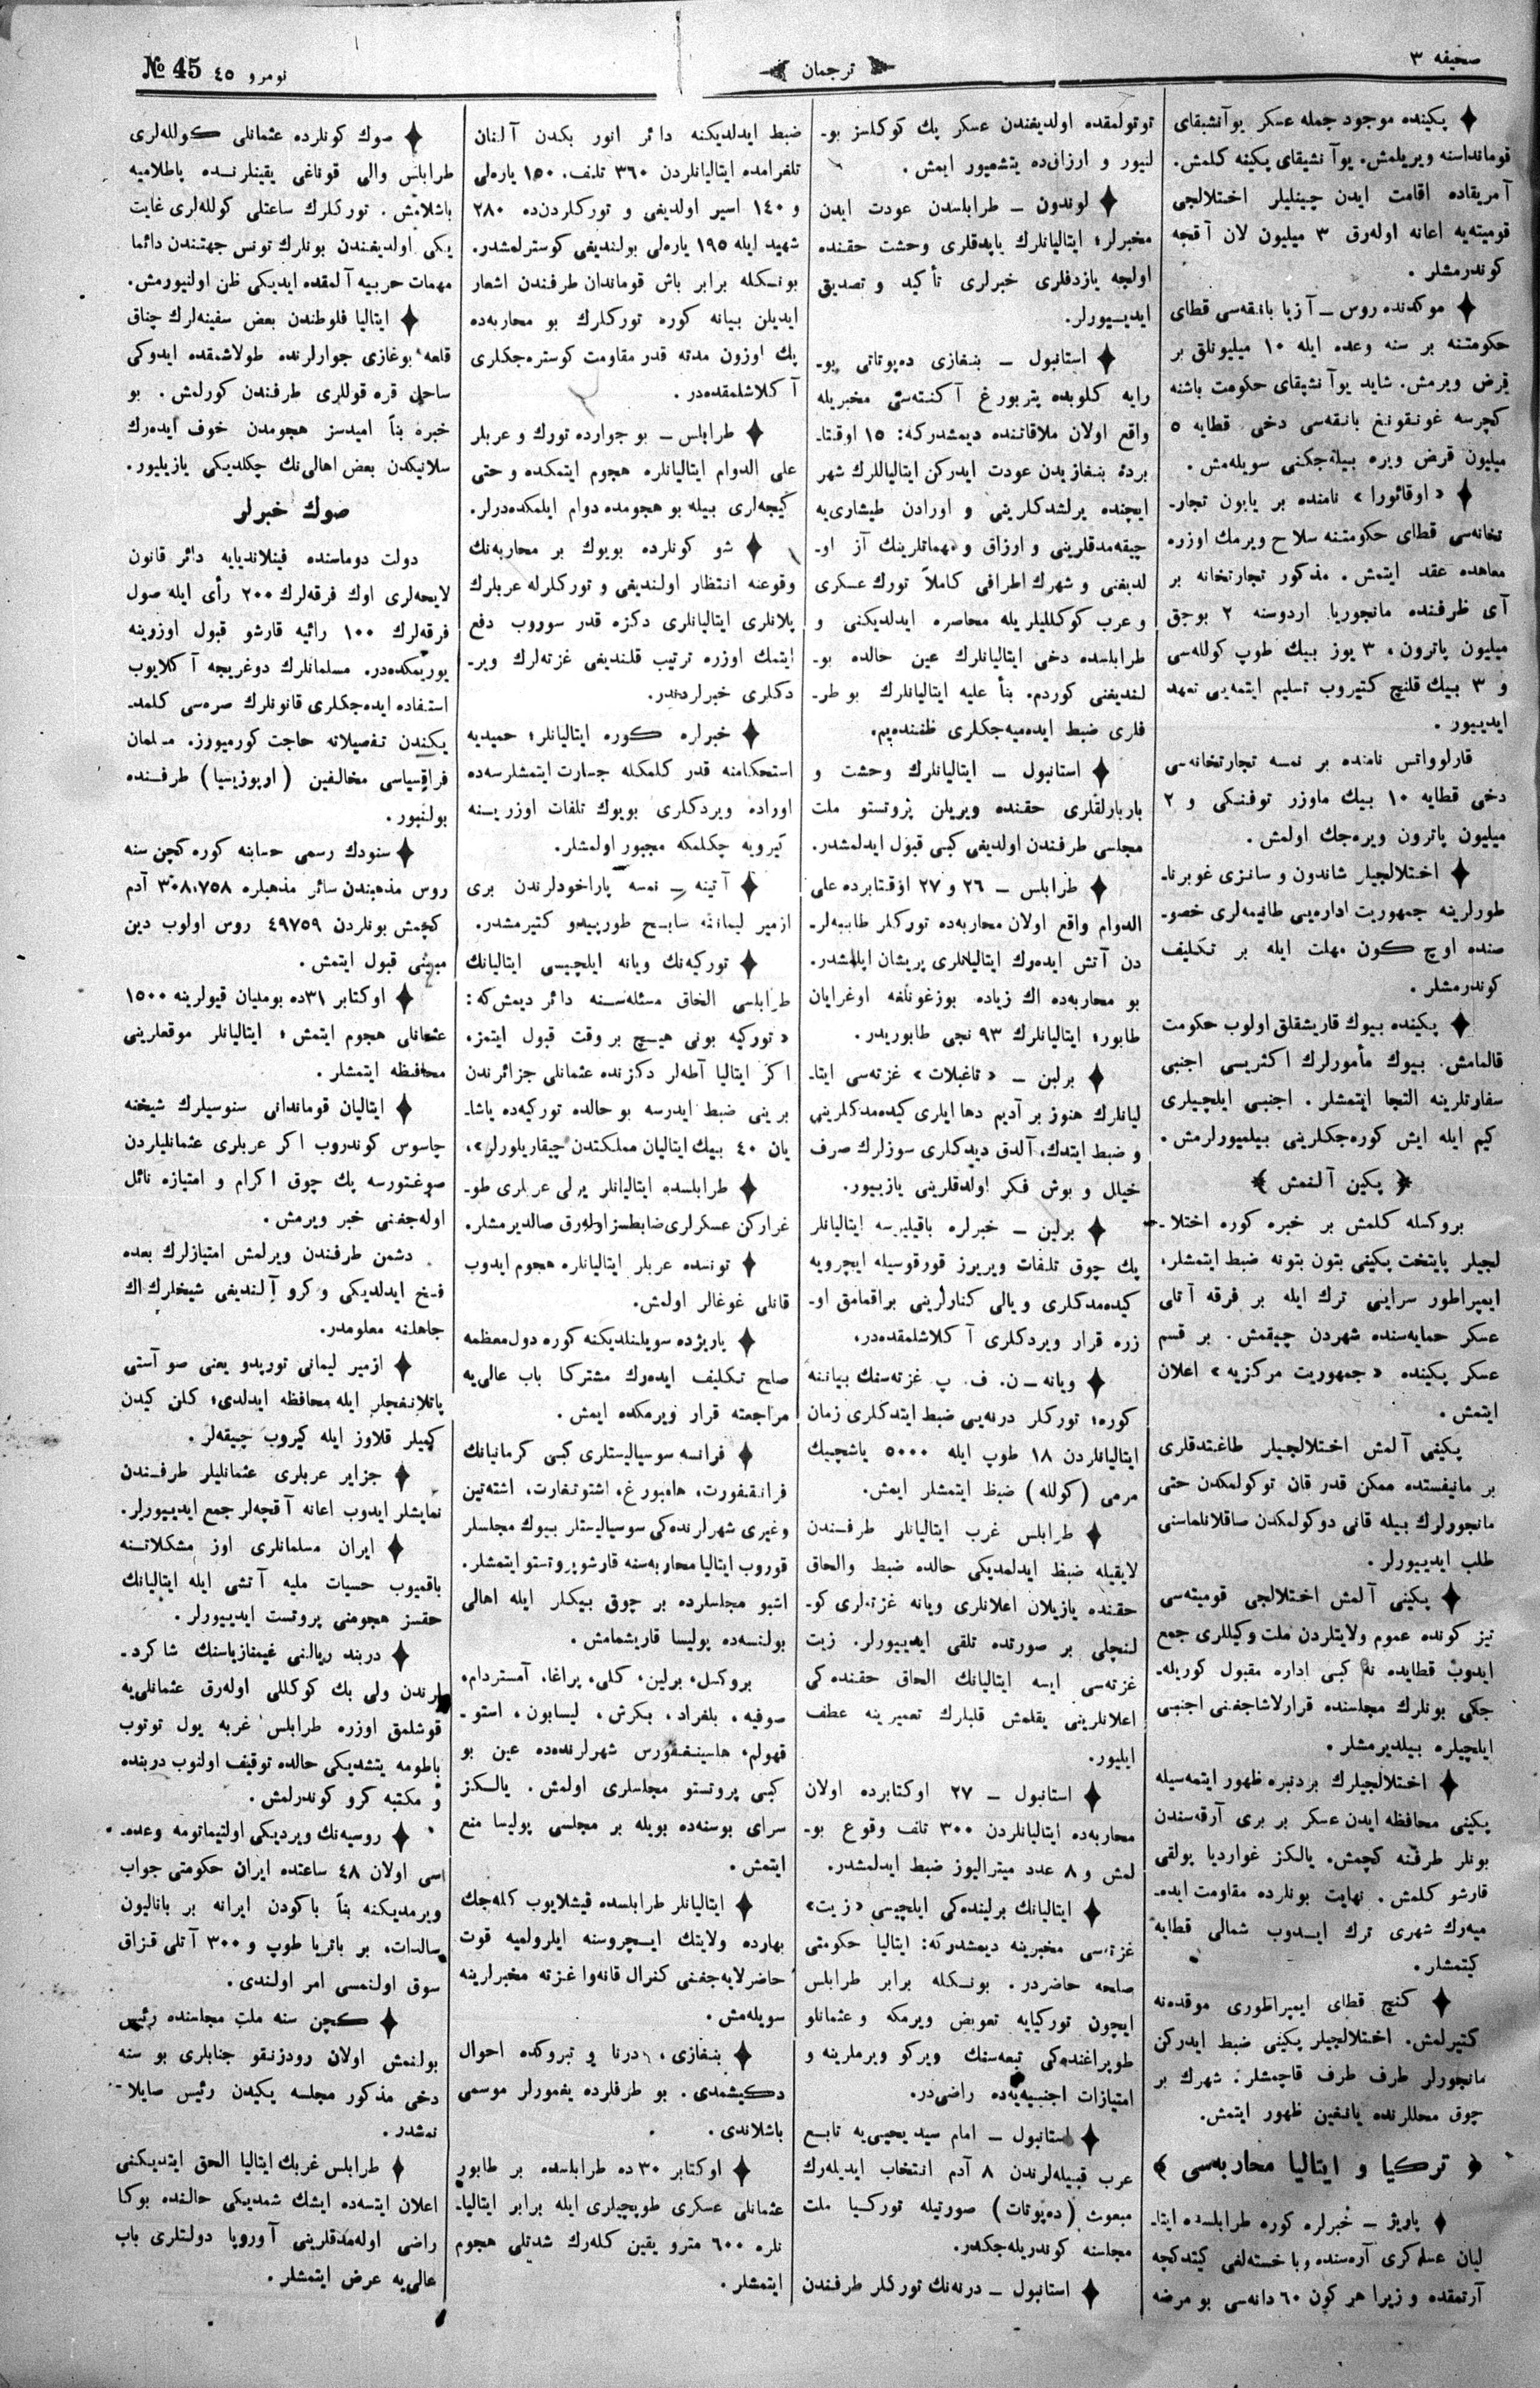 صحیفه ٣
ترجمان
نومرو ٤٥
№ 45
پكینده موجود جمله عسكر یوآنشیقای
قومانداسنه ویریلمش. یوآ نشیقای پكینه كلمش.
آمریقاده اقامت ایدن چینلیلر اختلالجی
قومیته‌یه اعانه اوله‌رق ٣ میلیون لان آقچه
كوندرمشلر .
موكدنده روس ــ آزیا بانقه‌سی قطای
حكومتنه بر سنه وعده ایله ١٠ میلیونلق بر
قرض ویرمش. شاید یوآ نشیقای حكومت باشنه
كچرسه غونقونغ بانقه‌سی دخی قطایه ٥
میلیون قرض ویره بیله‌جكنی سویله‌مش .
« اوقائورا » نامنده بر یابون تجار-
تخانه‌سی قطای حكومتنه سلاح ویرمك اوزره
معاهده عقد ایتمش . مذكور تجارتخانه بر
آی ظرفنده مانجوریا اردوسنه ٢ بوچق
میلیون پاترون ، ٣ یوز بیك طوپ كولله‌سی
و ٣ بیك قلنچ كتیروب تسلیم ایتمه‌یی تعهد
ایدییور .
قارلوواتس نامنده بر نمسه تجارتخانه‌سی
دخی قطایه ١٠ بیك ماوزر توفنكی و ٢
میلیون پاترون ویره‌جك اولمش .
اختلالجیلر شاندون و سانزی غوبرنا-
طورلرینه جمهوریت اداره‌یی طانیمه‌لری خصو-
صنده اوچ كون مهلت ایله بر تكلیف
كوندرمشلر .
پكینده بیوك قاریشقلق اولوب حكومت
قالمامش. بیوك مأمورلرك اكثریسی اجنبی
سفارتلرینه التجا ایتمشلر . اجنبی ایلچیلری
كیم ایله ایش كوره‌جكلرینی بیلمیورلرمش .
﴿ پكین آلنمش ﴾
بروكسله كلمش بر خبره كوره اختلا-
لجیلر پایتخت پكینی بتون بتونه ضبط ایتمشلر،
ایمپراطور سراینی ترك ایله بر فرقه آتلی
عسكر حمایه‌سنده شهردن چیقمش. بر قسم
عسكر پكینده « جمهوریت مركزیه » اعلان
ایتمش .
پكینی آلمش اختلالجیلر طاغتدقلری
بر مانیفستده ممكن قدر قان توكولمكدن حتی
مانجورلرك بیله قانی دوكولمكدن صاقلانلماسنی
طلب ایدییورلر .
پكینی آلمش اختلالجی قومیته‌سی
تیز كونده عموم ولایتلردن ملت وكیللری جمع
ایدوب قطایده نه كبی اداره مقبول كوریله-
جكی بونلرك مجلسنده قرارلاشاجغنی اجنبی
ایلچیلره بیلدیرمشلر .
اختلالجیلرك بردنبره ظهور ایتمه‌سیله
پكینی محافظه ایدن عسكر بر بری آرقه‌سندن
بونلر طرفنه كچمش. یالكز غواردیا پولقی
قارشو كلمش . نهایت بونلرده مقاومت ایده-
میه‌رك شهری ترك ایدوب شمالی قطایه
كیتمشلر .
كنچ قطای ایمپراطوری موقدنه
كتیرلمش. اختلالجیلر پكینی ضبط ایدركن
مانجورلر طرف طرف قاچمشلر. شهرك بر
چوق محللرنده یانغین ظهور ایتمش.
﴿ تركیا و ایتالیا محاربه‌سی ﴾
پاریژ ــ خبرلره كوره طرابلسده ایتا-
لیان عسكری آره‌سنده وبا خسته‌لغی كیتدكچه
آرتمقده و زیرا هر كون ٦٠ دانه‌سی بو مرضه
توتولمقده اولدیغندن عسكر پك كوكلسز بو-
لنیور و ارزاق‌ده یتشمیور ایمش .
لوندون ــ طرابلسدن عودت ایدن
مخبرلر؛ ایتالیانلرك یاپدقلری وحشت حقنده
اولجه یازدقلری خبرلری تأكید و تصدیق
ایدییورلر.
استانبول ــ بنغازی ده‌پوتاتی بو-
رایه كلوبده پتربورغ آكنته‌سی مخبریله
واقع اولان ملاقاتنده دیمشدركه: ١٥ اوقتا-
برده بنغازیدن عودت ایدركن ایتالیاللرك شهر
ایچنده یرلشدكلرینی و اورادن طیشاری‌یه
چیقه‌مدقلرینی و ارزاق و مهماتلرینك آز او-
لدیغنی و شهرك اطرافی كاملاً تورك عسكری
و عرب كوكللیلریله محاصره ایدلدیكنی و
طرابلسده دخی ایتالیانلرك عین حالده بو-
لندیغنی كوردم. بنأ علیه ایتالیانلرك بو طر-
فلری ضبط ایده‌میه‌جكلری ظننده‌یم.
استانبول ــ ایتالیانلرك وحشت و
باربارلقلری حقنده ویریلن پروتستو ملت
مجلسی طرفندن اولدیغی كبی قبول ایدلمشدر.
طرابلس ــ ٢٦ و ٢٧ اوقتابرده علی
الدوام واقع اولان محاربه‌ده توركلر طابیه‌لر-
دن آتش ایده‌رك ایتالیانلری پریشان ایلمشدر.
بو محاربه‌ده اك زیاده بوزغونلغه اوغرایان
طابور؛ ایتالیانلرك ٩٣ نجی طابوریدر.
برلین ــ « تاغبلات » غزته‌سی ایتا-
لیانلرك هنوز بر آدیم دها ایلری كیده‌مدكلرینی
و ضبط ایتدك، آلدق دیدكلری سوزلرك صرف
خیال و بوش فكر اولدقلرینی یازییور.
برلین ــ خبرلره باقیلیرسه ایتالیانلر
پك چوق تلفات ویریرز قورقوسیله ایچرویه
كیده‌مدكلری و یالی كنارلرینی براقمامق او-
زره قرار ویردكلری آكلاشلمقده‌در.
ویانه ــ ن. ف. پ غزته‌سنك بیاننه
كوره؛ توركلر درنه‌یی ضبط ایتدكلری زمان
ایتالیانلردن ١٨ طوپ ایله ٥٠٠٠ یاشچیك
مرمی (كولله) ضبط ایتمشلر ایمش.
طرابلس غرب ایتالیانلر طرفندن
لایقیله ضبط ایدلمدیكی حالده ضبط والحاق
حقنده یازیلان اعلانلری ویانه غزته‌لری كو-
لنجلی بر صورتده تلقی ایدییورلر. زیت
غزته‌سی ایسه ایتالیانك الحاق حقنده‌كی
اعلانلرینی یقلمش قلبلرك تعمیرینه عطف
ایلیور.
استانبول ــ ٢٧ اوكتابرده اولان
محاربه‌ده ایتالیانلردن ٣٠٠ تلف وقوع بو-
لمش و ٨ عدد میترالیوز ضبط ایدلمشدر.
ایتالیانك برلینده‌كی ایلچیسی «زیت»
غزته‌سی مخبرینه دیمشدركه: ایتالیا حكومتی
صلحه حاضردر . بونكله برابر طرابلس
ایچون توركیایه تعویض ویرمكه و عثمانلو
طوپراغنده‌كی تبعه‌سنك ویركو ویرملرینه و
امتیازات اجنبیه‌یه‌ده راضی‌در.
استانبول ــ امام سید یحیی‌یه تابع
عرب قبیله‌لرندن ٨ آدم انتخاب ایدیله‌رك
مبعوث (ده‌پوتات) صورتیله توركیا ملت
مجلسنه كوندریله‌جكدر.
استانبول ــ درنه‌نك توركلر طرفندن
ضبط ایدلدیكنه دائر انور بكدن آلنان
تلغرامده ایتالیانلردن ٣٦٠ تلف، ١٥٠ یاره‌لی
و ١٤٠ اسیر اولدیغی و توركلردن‌ده ٢٨٠
شهید ایله ١٩٥ یاره‌لی بولندیغی كوسترلمشدر.
بونكله برابر باش قوماندان طرفندن اشعار
ایدیلن بیانه كوره توركلرك بو محاربه‌ده
پك اوزون مدته قدر مقاومت كوستره‌جكلری
آكلاشلمقده‌در.
طرابلس ــ بو جوارده تورك و عربلر
علی الدوام ایتالیانلره هجوم ایتمكده و حتی
كیجه‌لری بیله بو هجومده دوام ایلمكده‌درلر.
شو كونلرده بویوك بر محاربه‌نك
وقوعنه انتظار اولندیغی و توركلرله عربلرك
پلانلری ایتالیانلری دكزه قدر سوروب دفع
ایتمك اوزره ترتیب قلندیغی غزته‌لرك ویر-
دكلری خبرلردندر.
خبرلره كوره ایتالیانلر؛ حمیدیه
استحكامنه قدر كلمكله جسارت ایتمشلرسه‌ده
اوراده ویردكلری بویوك تلفات اوزرینه
كیرویه چكلمكه مجبور اولمشلر.
آتینه ــ نمسه پاراخودلرندن بری
ازمیر لیماننه سابح طورپیدو كتیرمشدر.
توركیه‌نك ویانه ایلچیسی ایتالیانك
طرابلسی الحاق مسئله‌سنه دائر دیمش‌كه:
« توركیه بونی هیچ بر وقت قبول ایتمز.
اكر ایتالیا آطه‌لر دكزنده عثمانلی جزائرندن
برینی ضبط ایدرسه بو حالده توركیه‌ده یاشا-
یان ٤٠ بیك ایتالیان مملكتدن چیقاریلورلر».
طرابلسده ایتالیانلر یرلی عربلری طو-
غراركن عسكرلری ضابطسز اوله‌رق صالدیرمشلر.
تونسده عربلر ایتالیانلره هجوم ایدوب
قانلی غوغالر اولمش.
پاریژده سویلنلدیكنه كوره دول معظمه
صلح تكلیف ایده‌رك مشتركا باب عالی‌یه
مراجعته قرار ویرمكده ایمش .
فرانسه سوسیالیستلری كبی كرمانیانك
فرانقفورت، هامبورغ، اشتوتغارت، اشته‌تین
و غیری شهرلرنده‌كی سوسیالیستلر بیوك مجلسلر
قوروب ایتالیا محاربه‌سنه قارشو پروتستو ایتمشلر.
اشبو مجلسلرده بر چوق بیكلر ایله اهالی
بولنسه‌ده پولیسا قاریشمامش .
بروكسل، برلین، كلی، پراغا، آمستردام،
صوفیه، بلغراد، بكرش، لیسابون، استو-
قهولم، هلسینغفورس شهرلرنده‌ده عین بو
كبی پروتستو مجلسلری اولمش. یالكز
سرای بوسنه‌ده بویله بر مجلسی پولیسا منع
ایتمش .
ایتالیانلر طرابلسده قیشلایوب كله‌جك
بهارده ولایتك ایچروسنه ایلرولمیه قوت
حاضرلایه‌جغنی كنرال قانه‌وا غزته مخبرلرینه
سویله‌مش .
بنغازی، درنا و تبروكده احوال
دكیشمدی . بو طرفلرده یغمورلر موسمی
باشلاندی .
اوكتابر ٣٠ ده طرابلسده بر طابور
عثمانلی عسكری طوپچیلری ایله برابر ایتالیا-
نلره ٦٠٠ مترو یقین كله‌رك شدتلی هجوم
ایتمشلر .
صوك كونلرده عثمانلی كولله‌لری
طرابلس والی قوناغی یقینلرنده پاطلامیه
باشلامش . توركلرك ساعتلی كولله‌لری غایت
یكی اولدیغندن بونلرك تونس جهتندن دائما
مهمات حربیه آلمقده ایدیكی ظن اولنیورمش.
ایتالیا فلوطندن بعض سفینه‌لرك چناق
قلعه بوغازی جوارلرنده طولاشمقده ایدوكی
ساحل قره قوللری طرفندن كورلمش . بو
خبره بنأ امیدسز هجومدن خوف ایده‌رك
سلانیكدن بعض اهالی‌نك چكلدیكی یازیلیور.
صوك خبرلر
دولت دوماسنده فینلاندیایه دائر قانون
لایحه‌لری اوك فرقه‌لرك ٢٠٠ رأی ایله صول
فرقه‌لرك ١٠٠ رائیه قارشو قبول اوزوینه
یوریمكده‌در. مسلمانلرك دوغریجه آكلایوب
استفاده ایده‌جكلری قانونلرك صره‌سی كلمد-
یكندن تفصیلاته حاجت كورمیورز. مسلمان
فراقسیاسی مخالفین (اوپوزیسیا) طرفنده
بولنیور .
سنودك رسمی حسابنه كوره كچن سنه
روس مذهبندن سائر مذهبلره ٣٠٨،٧٥٨ آدم
كچمش بونلردن ٤٩٧٥٩ روس اولوب دین
مبینی قبول ایتمش .
اوكتابر ٣١ده بومیلیان قپولرینه ١٥٠٠
عثمانلی هجوم ایتمش ؛ ایتالیانلر موقعلرینی
محافظه ایتمشلر .
ایتالیان قوماندانی سنوسیلرك شیخنه
جاسوس كوندروب اكر عربلری عثمانلیلردن
صوغتورسه پك چوق اكرام و امتیازه نائل
اوله‌جغنی خبر ویرمش .
دشمن طرفندن ویرلمش امتیازلرك بعده
فسخ ایدلدیكی و كرو آلندیغی شیخلرك اك
جاهلنه معلومدر.
ازمیر لیمانی توریدو یعنی صو آستی
پاتلانغجلر ایله محافظه ایدلدی؛ كلن كیدن
كمیلر قلاوز ایله كیروب چیقه‌لر .
جزایر عربلری عثمانلیلر طرفندن
نمایشلر ایدوب اعانه آقچه‌لر جمع ایدییورلر.
ایران مسلمانلری اوز مشكلاتنه
باقمیوب حسیات ملیه آتشی ایله ایتالیانك
حقسز هجومنی پروتست ایدییورلر .
دربند ریالنی غیمنازیاسنك شاكرد-
لرندن ولی بك كوكللی اوله‌رق عثمانلی‌یه
قوشلمق اوزره طرابلس غربه یول توتوب
باطومه یتشدیكی حالده توقیف اولنوب دربنده
و مكتبه كرو كوندرلمش .
روسیه‌نك ویردیكی اولتیماتومه وعده-
سی اولان ٤٨ ساعتده ایران حكومتی جواب
ویرمدیكنه بنأ باكودن ایرانه بر باتالیون
سالدات، بر باتریا طوپ و ٣٠٠ آتلی قزاق
سوق اولنمسی امر اولندی .
كچن سنه ملت مجلسنده رئیس
بولنمش اولان رودزنقو جنابلری بو سنه
دخی مذكور مجلسه یكیدن رئیس صایلا-
نمشدر .
طرابلس غربك ایتالیا الحق ایتدیكنی
اعلان ایتسه‌ده ایشك شمدیكی حالنده بوكا
راضی اوله‌مدقلرینی آوروپا دولتلری باب
عالی‌یه عرض ایتمشلر .